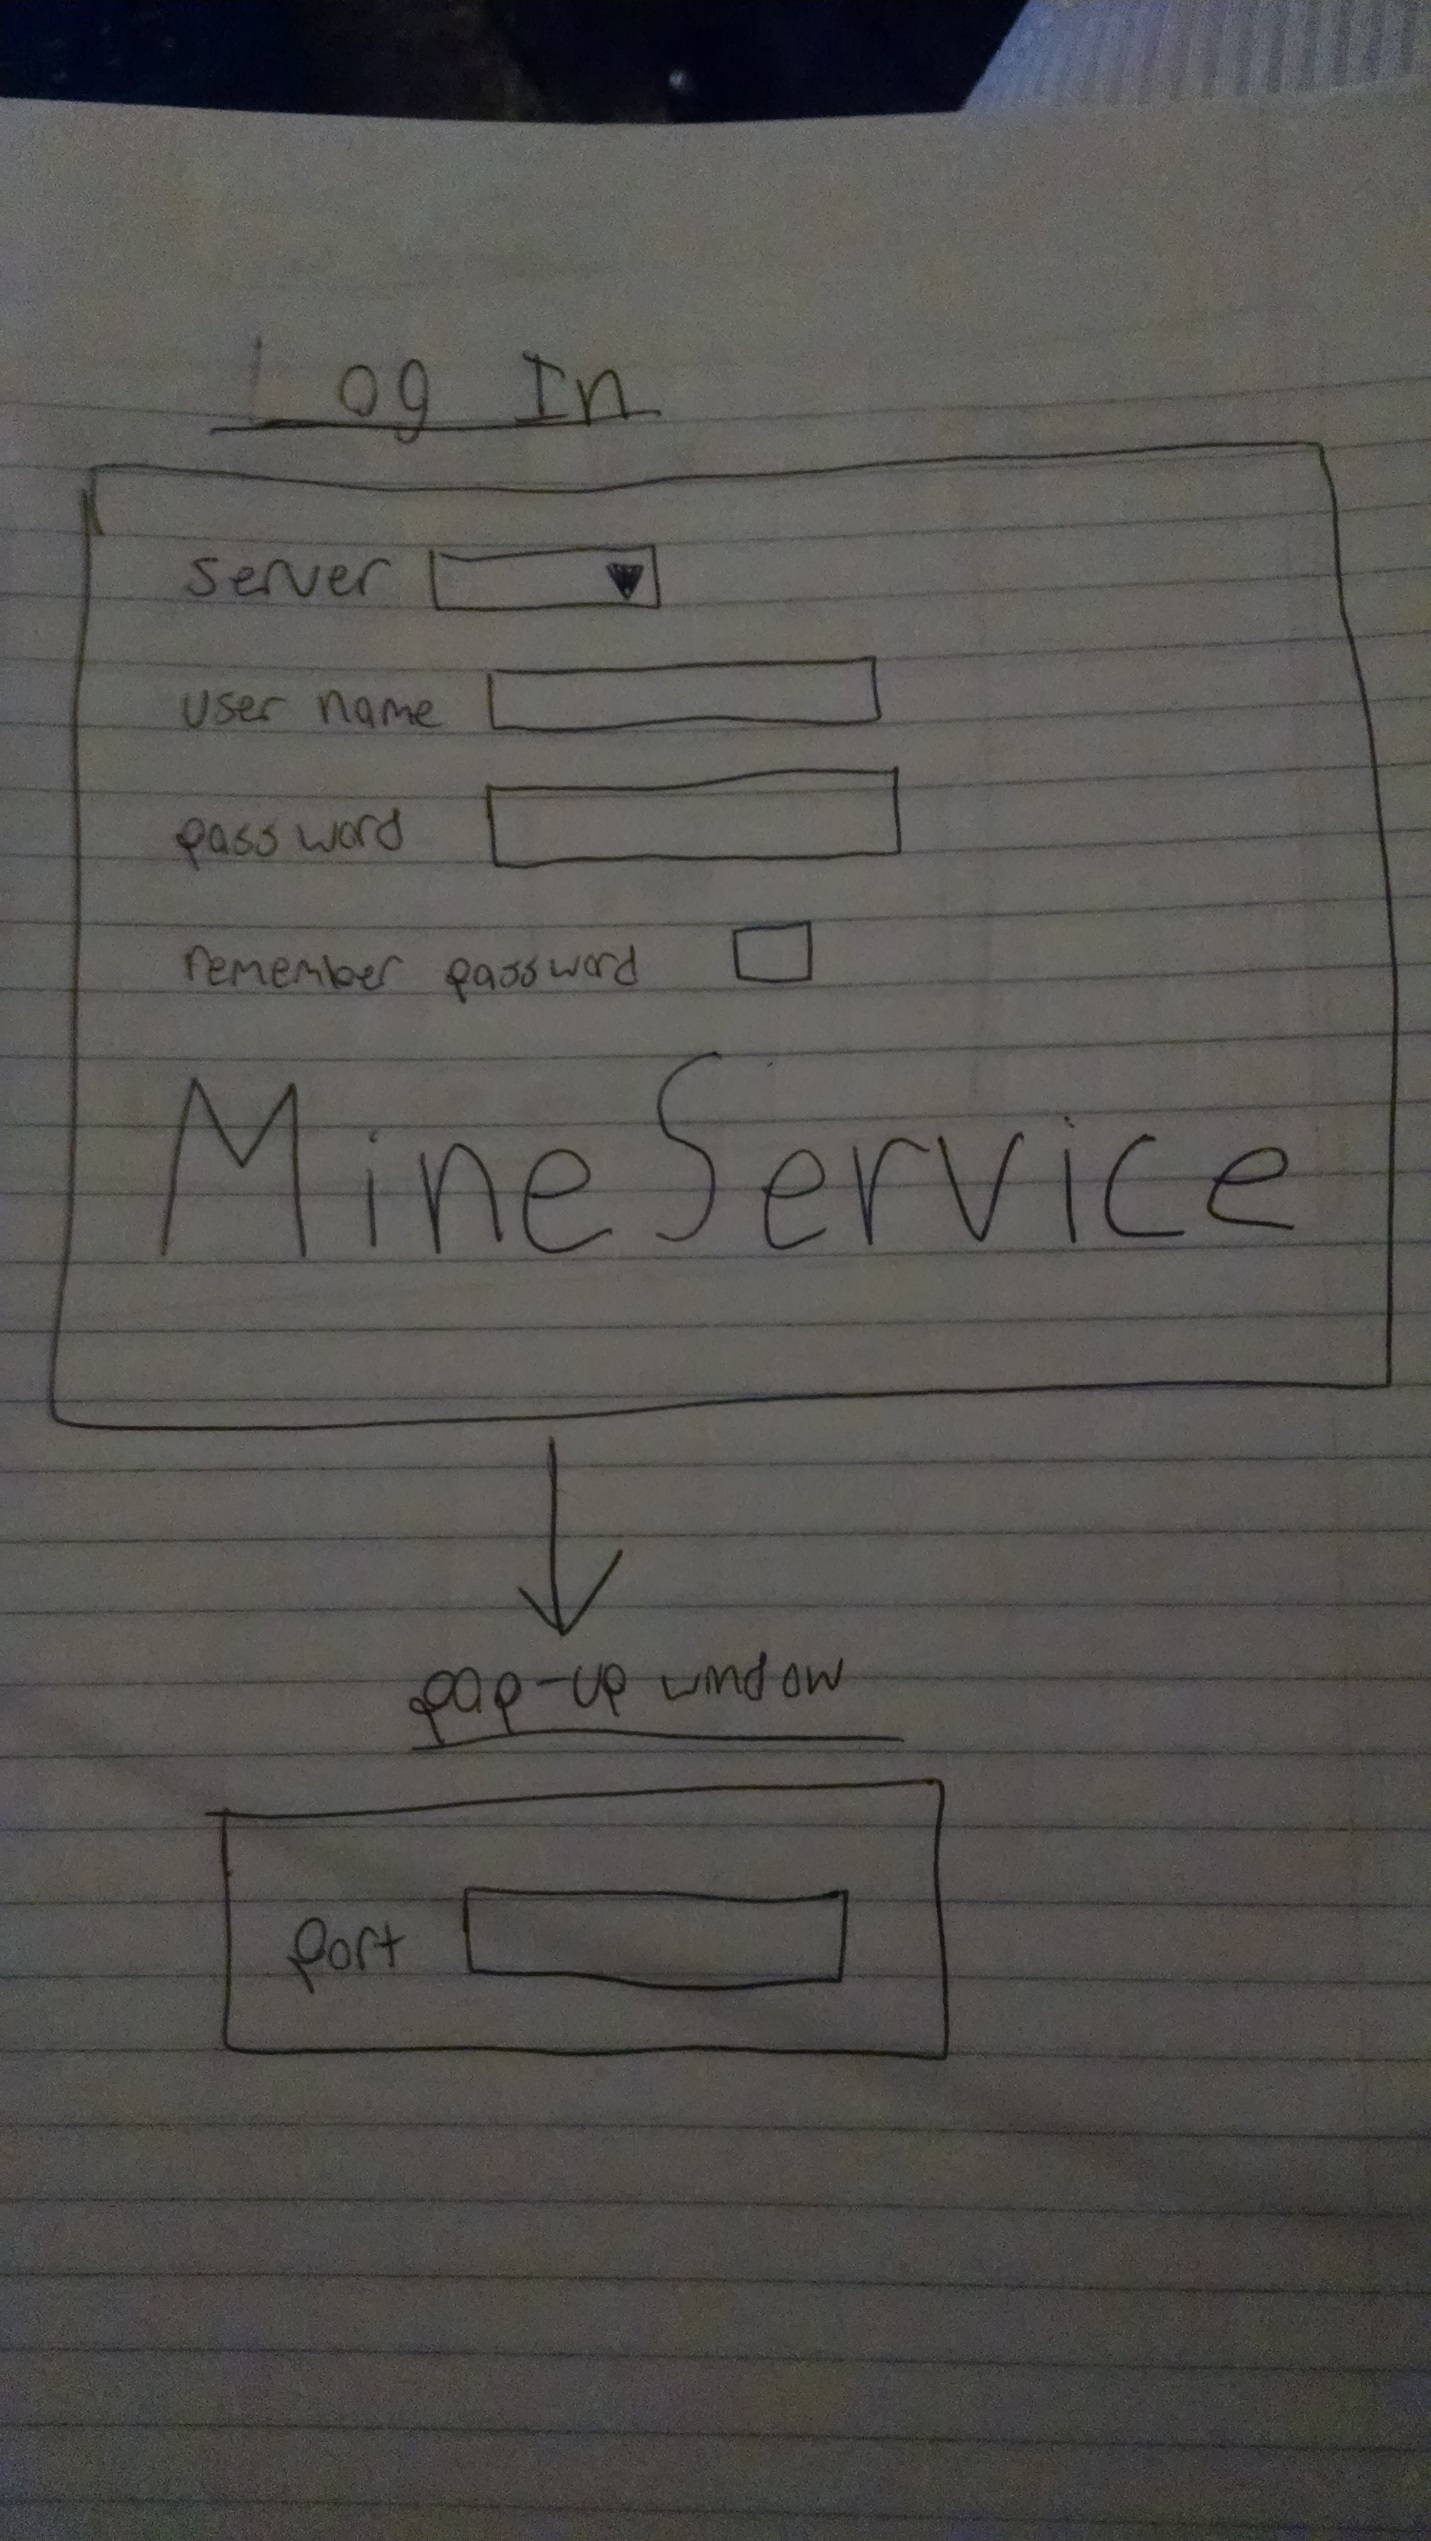 Log In
server
user name
password
remember password
MineService
pop-up window
port